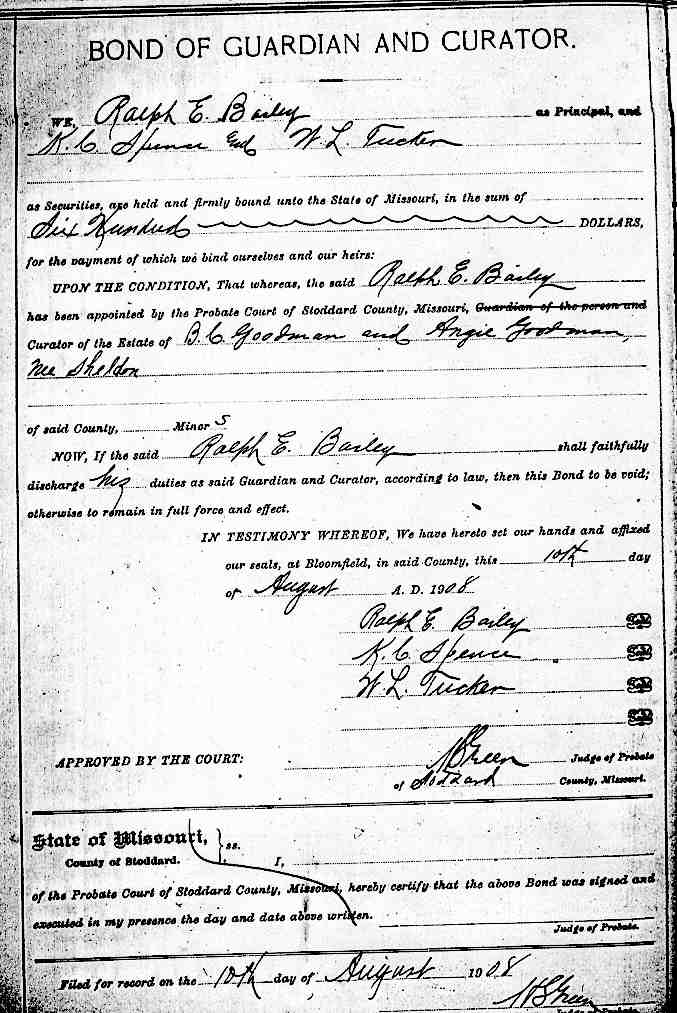 BOND OF GUARDIAN AND CURATOR.
WE, Ralph E. Bailey as Principal, and
K. C. Spence and W. L. Tucker
as Securities, are held and firmly bound unto the State of Missouri, in the sum of
Six Hundred DOLLARS,
for the payment of which we bind ourselves and our heirs:
UPON THE CONDITION, That whereas, the said Ralph E. Bailey
has been appointed by the Probate Court of Stoddard County, Missouri, Guardian of the person and
Curator of the Estate of B. C. Goodman and Angie Goodman,
nee Sheldon
of said County, Minor s
NOW, If the said Ralph E. Bailey shall faithfully
discharge his duties as said Guardian and Curator, according to law, then this Bond to be void;
otherwise to remain in full force and effect.
IN TESTIMONY WHEREOF, We have hereto set our hands and affixed
our seals, at Bloomfield, in said County, this 10th day
of August A. D. 1908
Ralph E. Bailey Seal
K. C. Spence Seal
W. L. Tucker Seal
Seal
APPROVED BY THE COURT: Green Judge of Probate
of Stoddard County, Missouri.
State of Missouri, } ss.
County of Stoddard. I,
of the Probate Court of Stoddard County, Missouri, hereby certify that the above Bond was signed and
executed in my presence the day and date above written.
Judge of Probate.
Filed for record on the 10th day of August 1908
Green
Judge of Probate